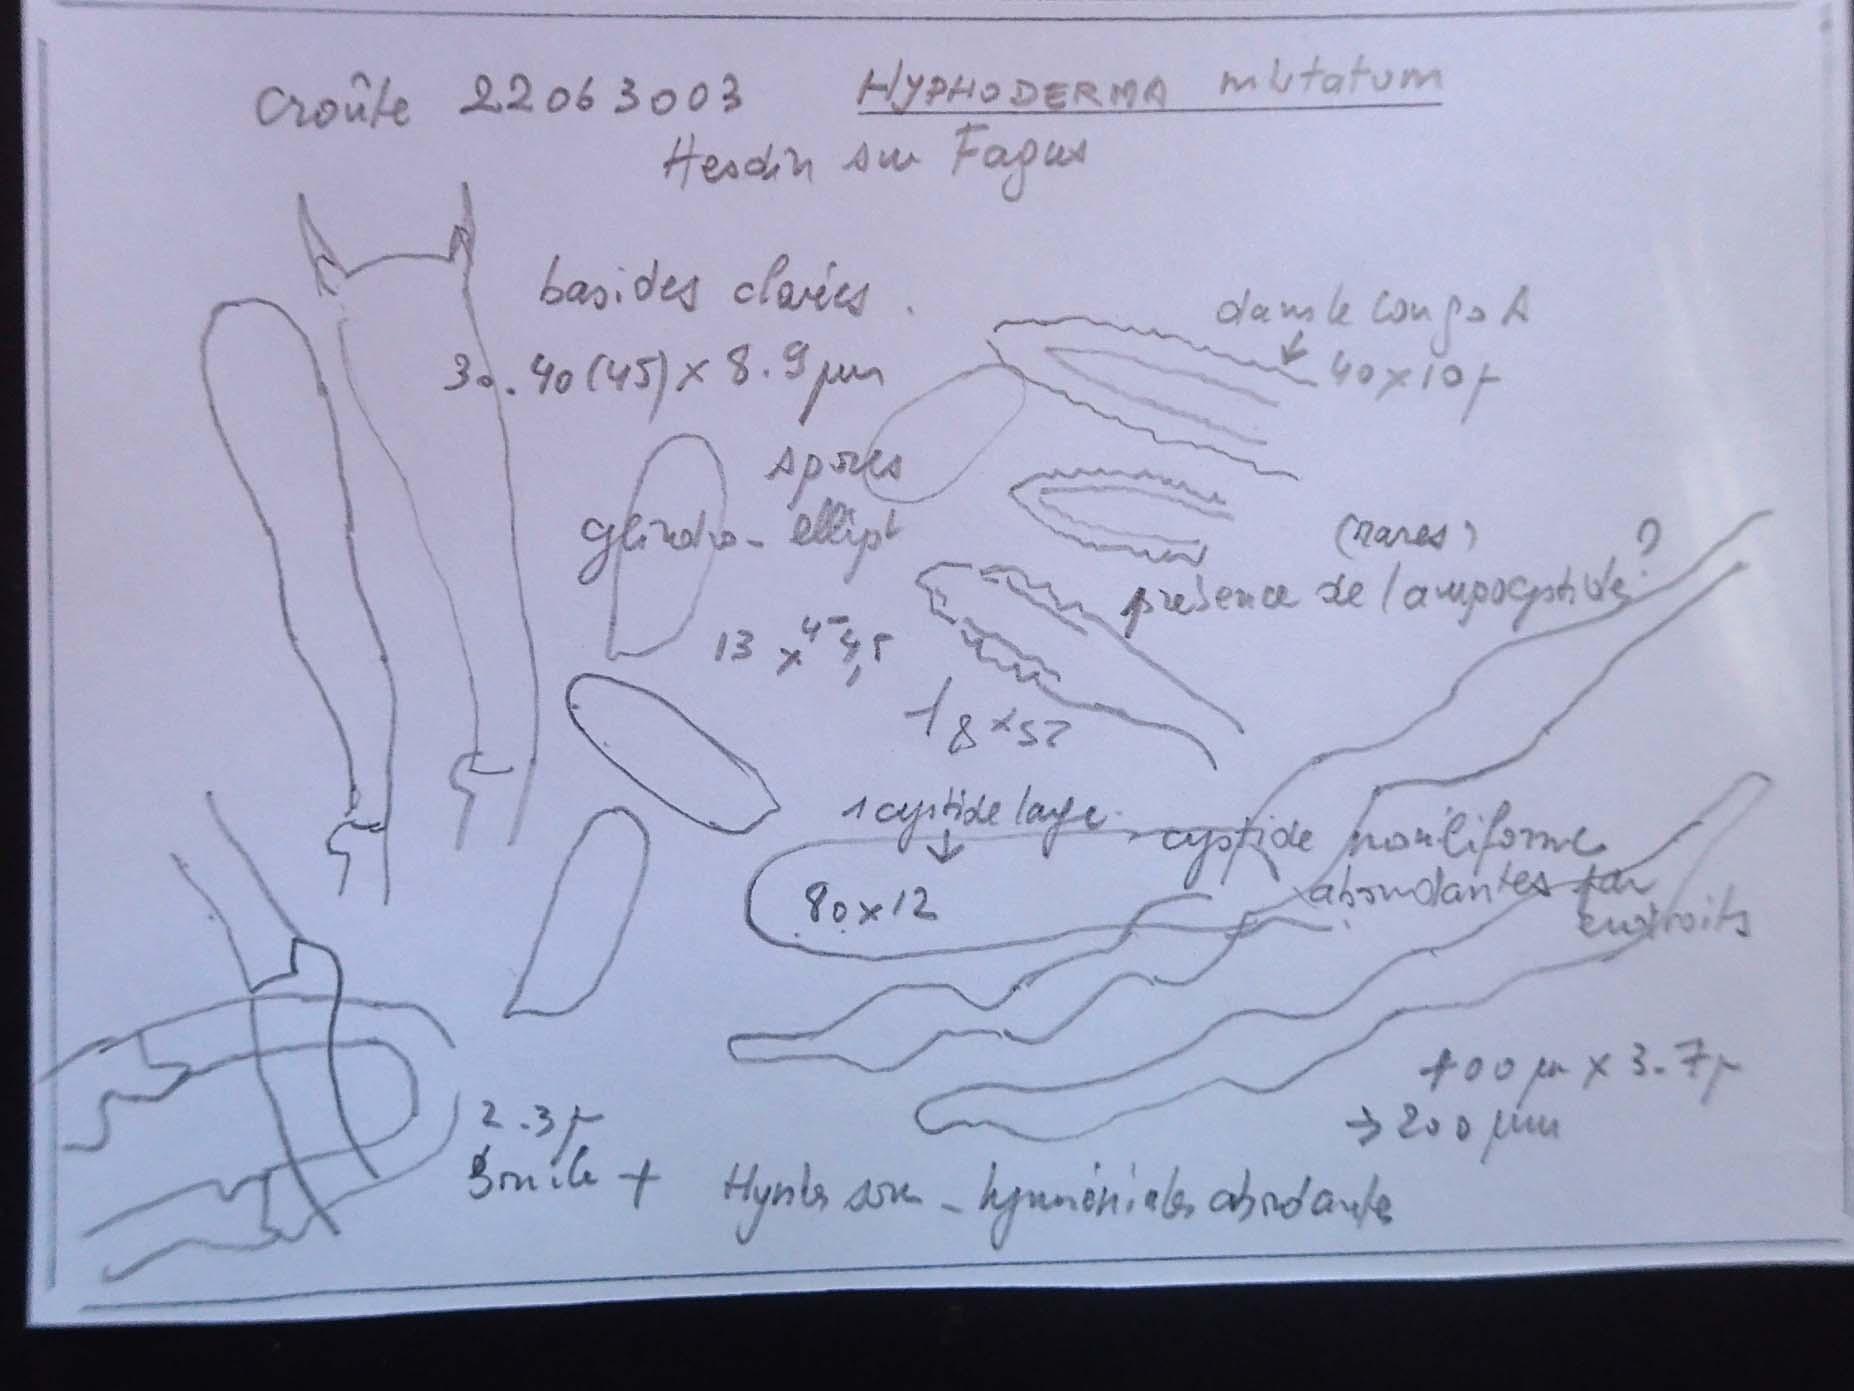 Croûte 22063003 HYPHODERMA mutatum
Hesdin sur Fagus
basides clavées.
30.40(45) x 8.9 µm
dans le congo A
40x10µ
spores
cylindro-ellipt
13 x 4-4,5
(rares)
présence de lampocystide?
18x52
1 cystide large
80x12
cystide moniliforme
abondantes par
endroits
100 µm x 3.7µ
→ 200 µm
2.3µ
Boucle + Hyphes sous-hyméniales abondantes